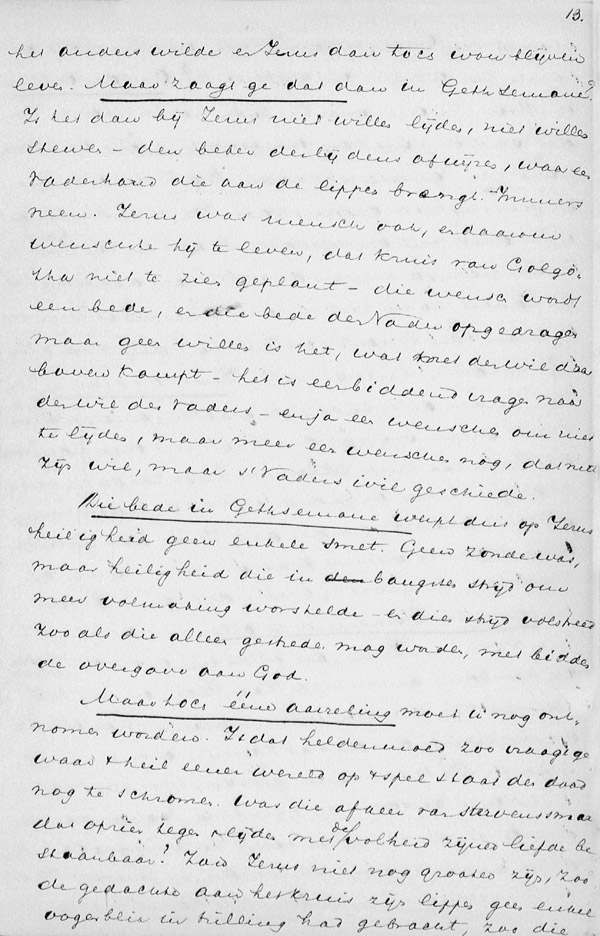 13.
het anders wilde en Jezus dan toch won blijven
leven. Maar zaagt ge dat dan in Gethsemané?
Is het dan bij Jezus niet willen lijden, niet willen
sterven – den beker des lijdens afwijzen, waar een
Vaderhand die aan de lippen brengt. Immers
neen. Jezus was mensch ook, en daarom
wenschte hij te leven, dat kruis van Golgo-
tha niet te zien geplant – die wensch wordt
een bede, en die bede den Vader opgedragen
maar geen willen is het, wat met den wil van
boven kampt – het is een biddend vragen naar
den wil des Vaders – en ja een wenschen om niet
te lijden, maar meer een wenschen nog, dat niet
zijn wil, maar 's Vaders wil geschiede.
Die bede in Gethsemane werpt dus op Jezus
heiligheid geen enkele smet. Geen zonde was,
maar heiligheid die in den bangsten strijd om
meer volmaking worstelde – en dien strijd volstreed
zooals die alleen gestreden mag worden, met bidden
de overgave aan God.
Maar toch ééne aarzeling moet u nog ont-
nomen worden. Is dat heldenmoed zoo vraagt ge
waar 't heil eener wereld op 't spel staat den dood
nog te schromen. Was die afkeer van stervenssmart
dat opzien tegen lijden met de volheid zijner liefde be
staanbaar? Zou Jezus niet nog grooter zijn, zoo
de gedachte aan het kruis zijn lippen geen enkel
oogenblik in trilling had gebracht, zoo die